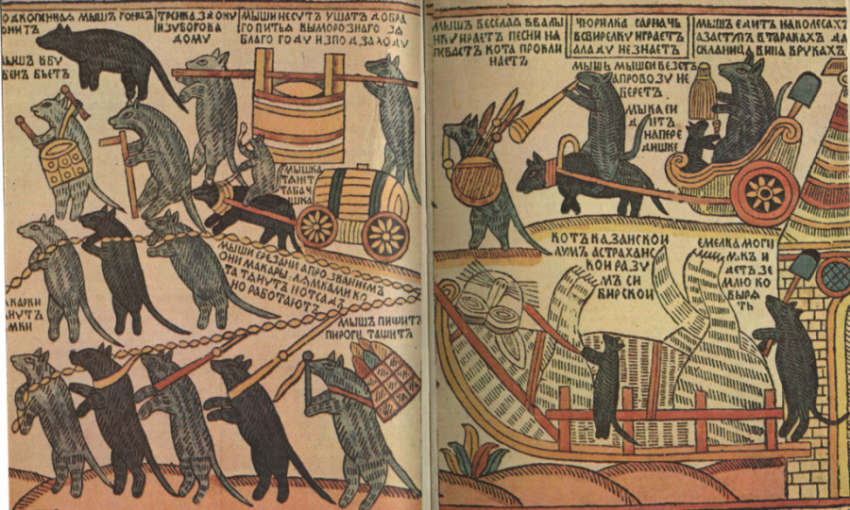 МЫШЪ ГОНЦЪ
ОНИТЪ
ТРЕНКА З ДОНУ
ИЗ УБОГОВА
ДОМУ
МЫШИ НЕСУТЪ УШАТЪ ДОБРА
ГО ПИТЬЯ ВЫМОРОЗНАГО ЗА
БЛАГО ГОДУ ИЗПОД ЗАХОДУ
МЫШЪ В БУ
БЕНЪ БЬЕТЪ
МЫШКА
ТЯНТ
ТАБАЧ
ИШКА
МЫШИ ЕРЕЗАНИ А ПРОЗВАНИЕМЪ
ОНИ МАКАРЫ ЛЯМКАМИ КО
ТА ТЯНУТЪ
НО РАБОТАЮТЪ
АКАРКИ
НУТЪ
МКИ
МЫШЪ ПИЩИТЪ
ПИРОГИ ТАЩИТЪ
МЫШЪ БЕСЕДА В ВАЛЫ
НКУ ИГРАЕТЪ ПЕСНИ НА
ПЕВАЕТЪ КОТА ПРОКЛИ
НАЕТЪ
ЧЮРИЛКА САРНАЧЬ
В СВИРЕЛКУ ИГРАЕТЪ
А ЛАДУ НЕ ЗНАЕТЪ
МЫШЪ ЕДИТЪ НА КОЛЕСАХЪ
А ЗАСТУПЪ В ТАРАКАХЪ ДА
СКЛЯНИЦА ВИНА В РУКАХЪ
МЫШЪ МЫШЕИ ВЕЗЕТЪ
А ПРОВОЗУ НЕ
БЕРЕТЪ
МЫКА СИ
ДИТЪ
НА ПЕРЕ
ДИШКЕ
КОТЪ КАЗАНСКОИ
АУМЪ АСТРАХАНС
КОИ РАЗУ
МЪ СИ
БИРСКОИ
ЕМЕЛКА МОГИ
ЛЯКЪ И
ДЕТЪ ЗЕ
МЛЮ КО
ВЫРЯ
ТЬ